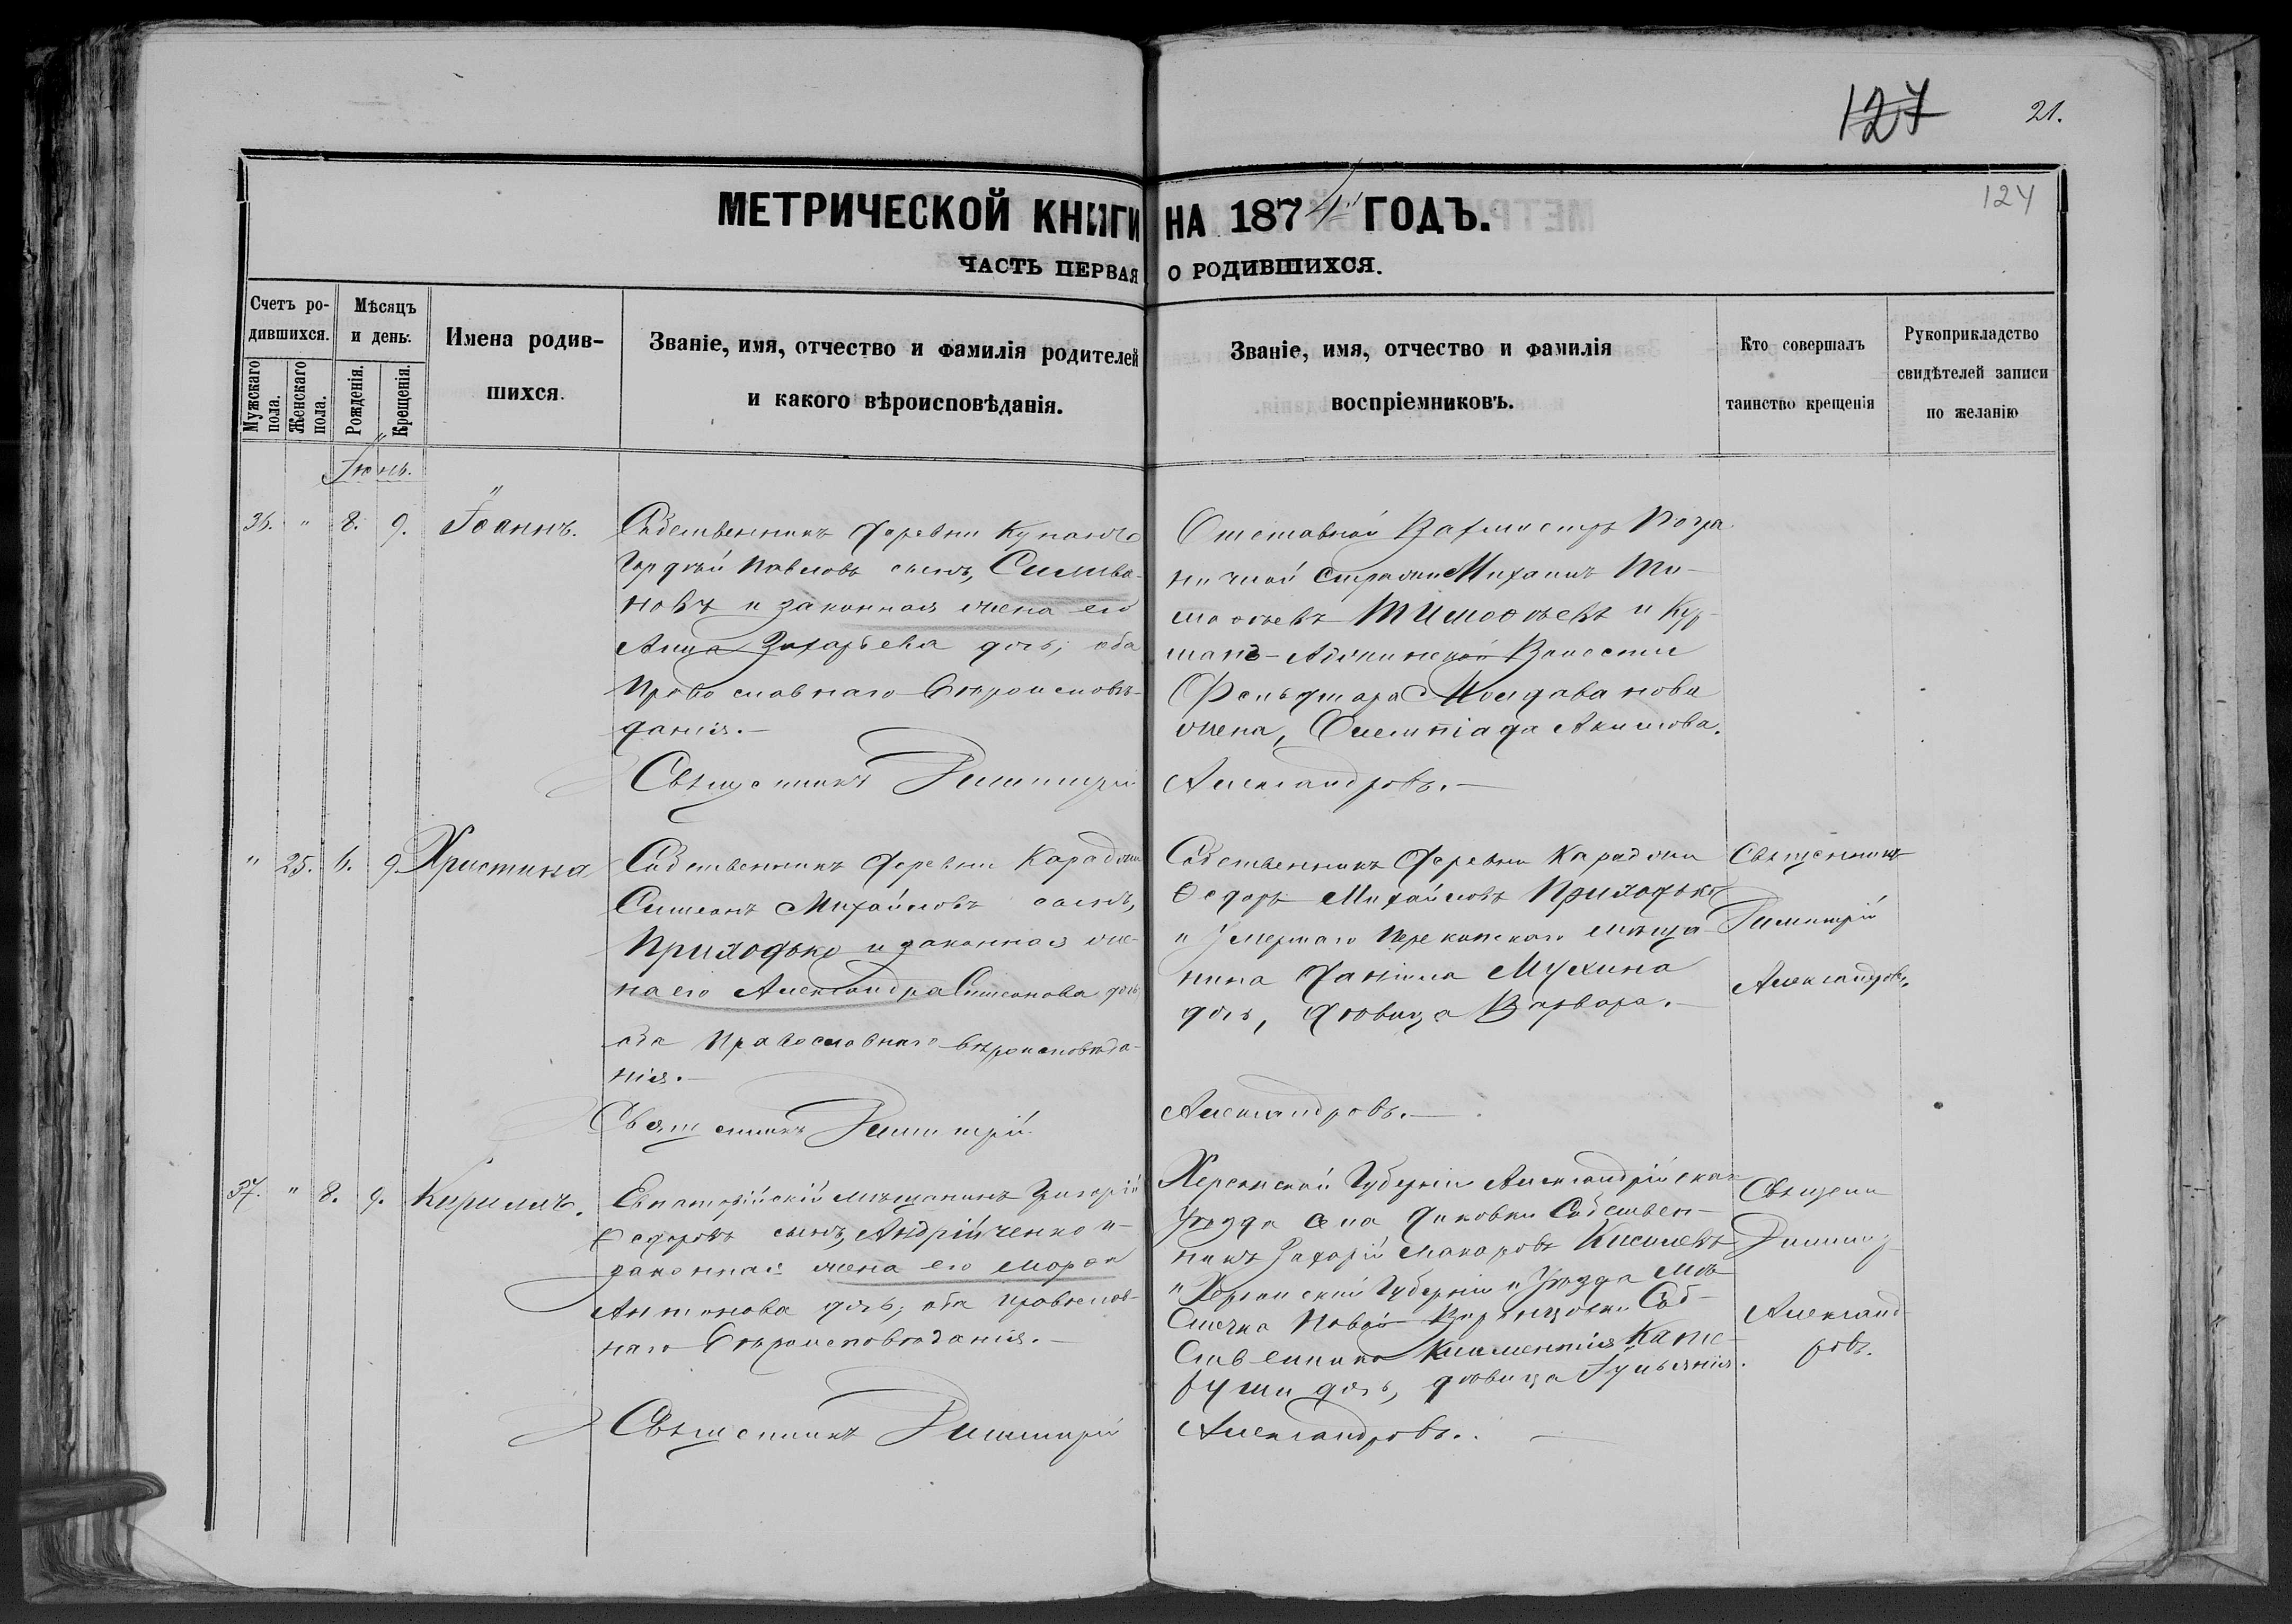 127 21.
124
МЕТРИЧЕСКОЙ КНИГИ НА 1874 ГОДЪ.
ЧАСТЬ ПЕРВАЯ О РОДИВШИХСЯ.
Счетъ родившихся.
Мужскаго пола.
Женскаго пола.
Мѣсяцъ и день:
Рожденія.
Крещенія.
Имена родившихся.
Званіе, имя, отчество и фамилія родителей
и какого вѣроисповѣданія.
Званіе, имя, отчество и фамилія
воспріемниковъ.
Кто совершалъ
таинство крещенія
Рукоприкладство
свидѣтелей записи
по желанію
Іюнь.
36. " 8. 9. Іоаннъ.
Собственникъ деревни
Гордѣй Павловъ сынъ, Силива-
новъ и законная жена его
Анна Захарьева дочь; оба
Православнаго Вѣроисповѣ-
данія.—
Отставной Вахмистръ Погра
ничной Стражи Михаилъ Ти-
моѳѣевъ Тимоѳѣевъ и Кур-
манъ- Волости
Фельдшера Молдаванова
жена, Олимпіада Акимова.
Священникъ Димитрій Александровъ.—
" 25. 6. 9. Христина
Собственникъ деревни
Симеонъ Михайловъ сынъ,
Приходько и законная же-
на его Александра Симеонова дочь;
оба Православнаго вѣроисповѣда-
нія.—
Собственникъ деревни
Ѳедоръ Михайловъ Приходько
и Умершаго Перекопскаго мѣща-
нина Даніила Мухина
дочь, дѣвица Варвара.—
Священникъ
Димитрій
Александровъ.
Священникъ Димитрій Александровъ.—
37. " 8. 9. Кириллъ.
Евпаторійскій мѣщанинъ Григорій
Ѳедоровъ сынъ, Андрійченко и
законная жена его Марѳа
Антонова дочь; оба Православ-
наго Вѣроисповѣданія.—
Херсонской Губерніи Александрійскаго
Уѣзда села Диковки Собствен-
никъ Захарій Макаровъ Киселевъ
и Херсонской Губерніи и Уѣзда Мѣ-
стечка Новой Воронцовки Соб-
ственника Климентія
дочь, дѣвица Іуліанія.
Священн
Димитр
Александ
ровъ.
Священникъ Димитрій Александровъ.—